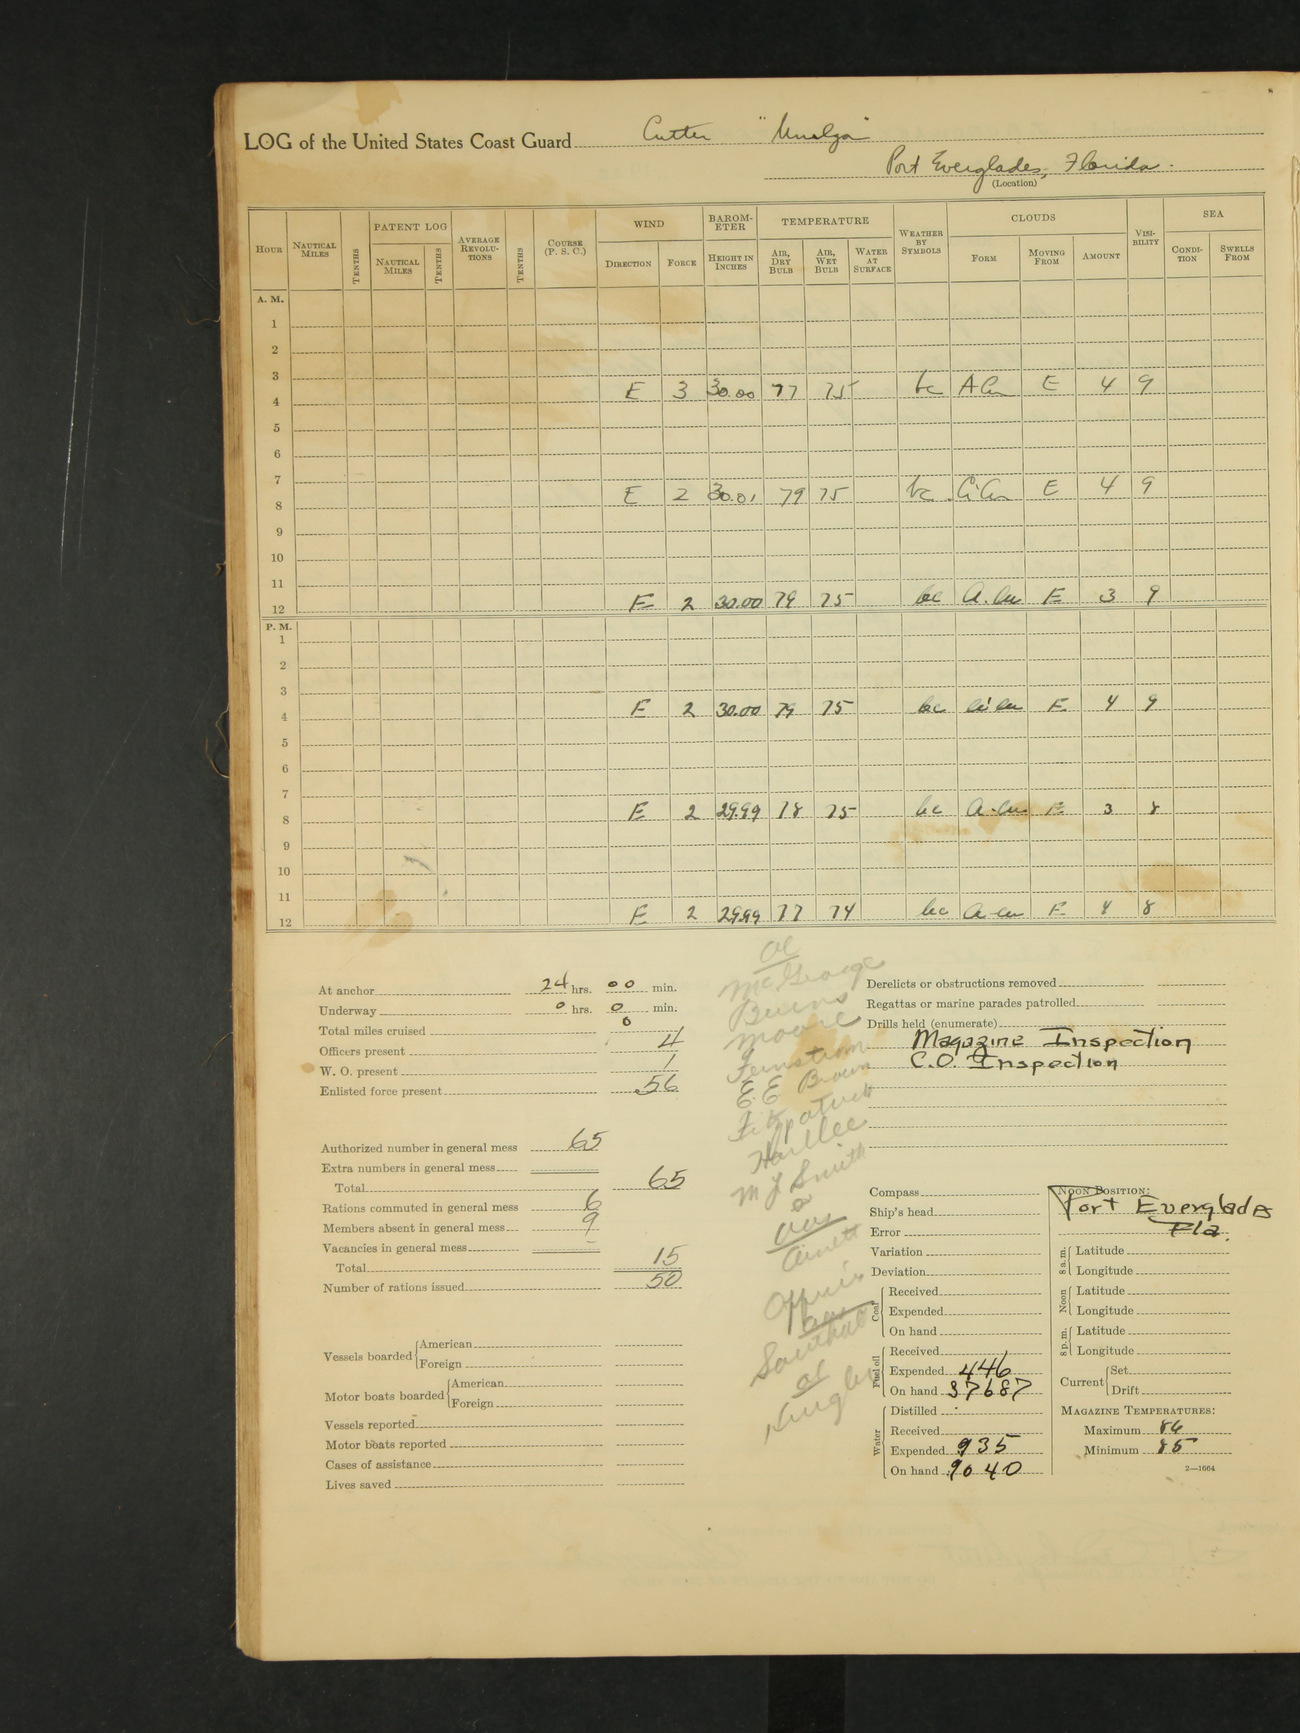 LOG of the United States Coast Guard Cutter "Unalga"
Port Everglades, Florida.
(Location)
HOUR NAUTICAL MILES TENTHS PATENT LOG NAUTICAL MILES TENTHS AVERAGE REVOLU-TIONS TENTHS COURSE (P. S. C.) WIND DIRECTION FORCE BAROM-ETER HEIGHT IN INCHES TEMPERATURE AIR, DRY BULB AIR, WET BULB WATER AT SURFACE WEATHER BY SYMBOLS CLOUDS FORM MOVING FROM AMOUNT VISI-BILITY SEA CONDI-TION SWELLS FROM
A. M.
1
2
3
4 E 3 30.00 77 75 bc A Cu E 4 9
5
6
7
8 E 2 30.01 79 75 bc Ci Cu E 4 9
9
10
11
12 E 2 30.00 79 75 bc A.Cu E 3 9
P. M.
1
2
3
4 E 2 30.00 79 75 bc Ci Cu E 4 9
5
6
7
8 E 2 29.99 78 75 bc A-Cu E 3 8
9
10
11
12 E 2 29.99 77 74 bc A-Cu E 4 8
At anchor 24 hrs. 00 min.
Underway 0 hrs. 0 min.
Total miles cruised 0
Officers present 4
W. O. present 1
Enlisted force present 56
Authorized number in general mess 65
Extra numbers in general mess
Total 65
Rations commuted in general mess 6
Members absent in general mess 9
Vacancies in general mess -
Total 15
Number of rations issued 50
Vessels boarded American
Foreign
Motor boats boarded American
Foreign
Vessels reported
Motor boats reported
Cases of assistance
Lives saved
McGeorge
Burns
Moore
E E Brown
Fitzpatrick
M J Smith
Derelicts or obstructions removed
Regattas or marine parades patrolled
Drills held (enumerate)
Magazine Inspection
C.O. Inspection
Compass
Ship's head
Error
Variation
Deviation
Coal Received
Expended
On hand
Fuel oil Received
Expended 446
On hand 37687
Water Distilled
Received
Expended 935
On hand 9040
NOON POSITION:
Port Everglades
Fla.
8 a.m. Latitude
Longitude
Noon Latitude
Longitude
8 p.m. Latitude
Longitude
Current Set
Drift
MAGAZINE TEMPERATURES:
Maximum 86
Minimum 85
2—1664